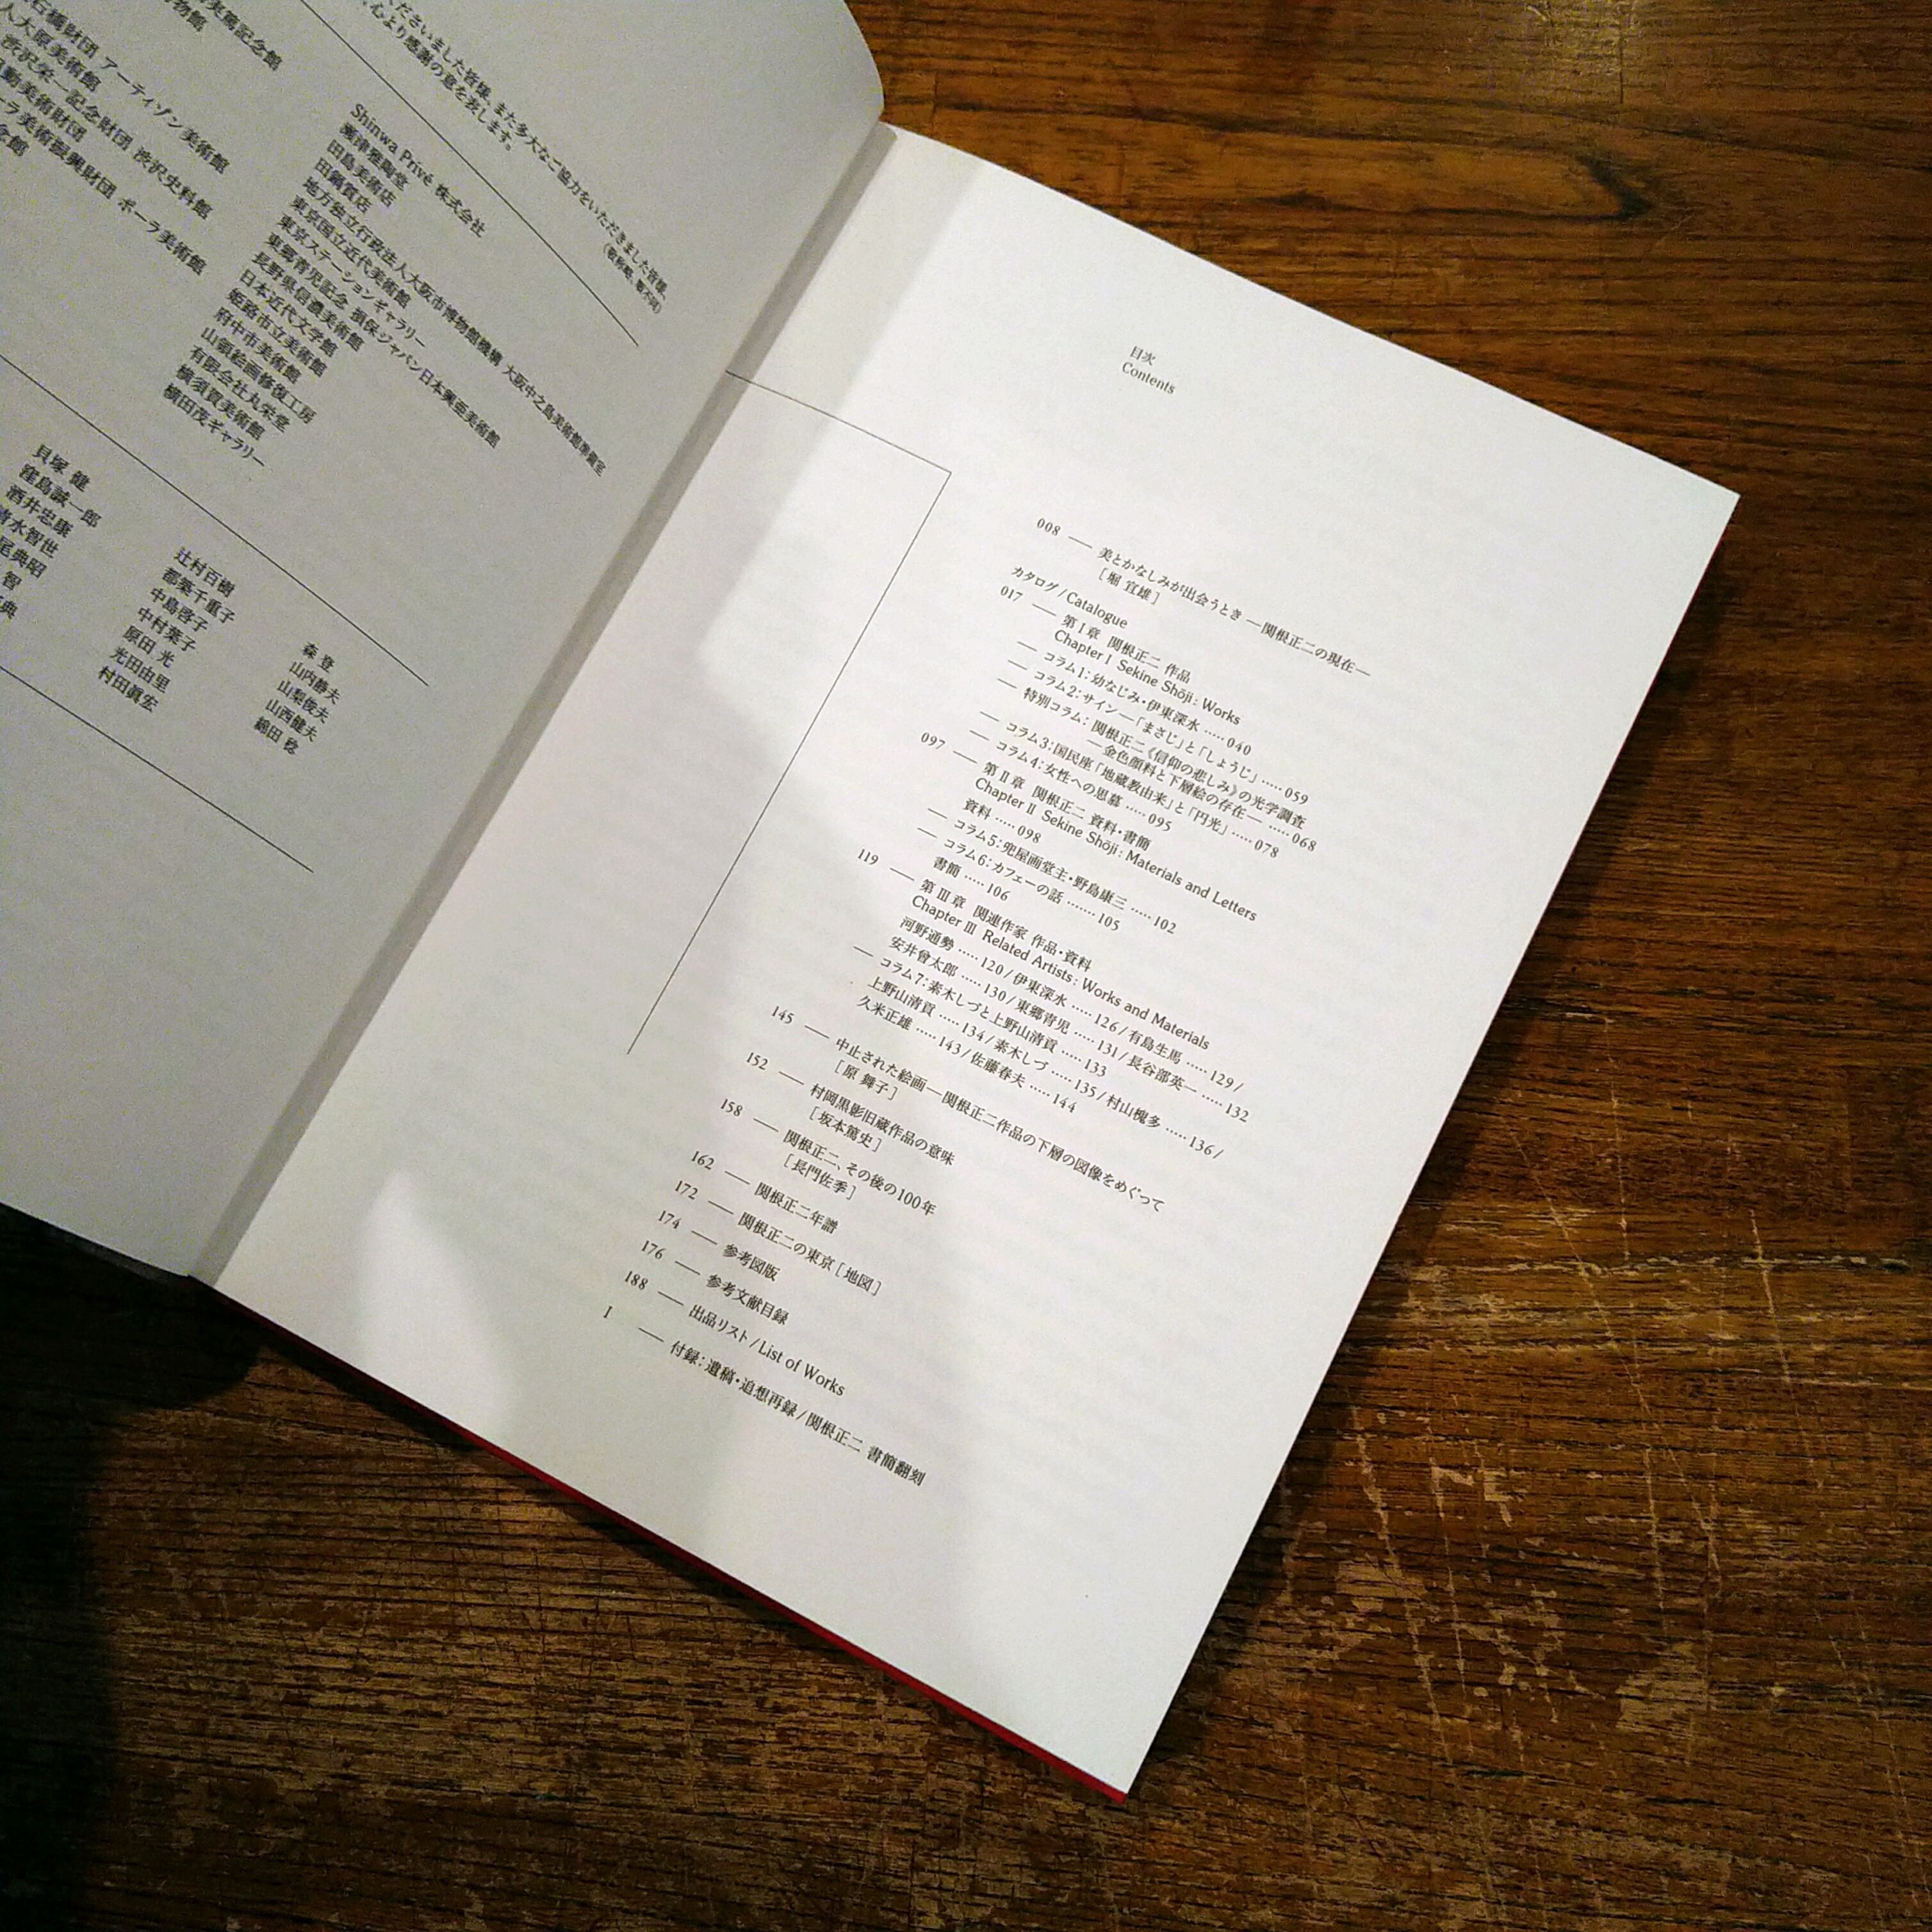 くださいました皆様、また多大なご協力をいただきました皆様、
心より感謝の意を表します。
(敬称略、順不同)
石橋財団 アーティゾン美術館
大原美術館
渋沢栄一記念財団 渋沢史料館
ポーラ美術振興財団 ポーラ美術館
Shinwa Privé 株式会社
瀬津雅陶堂
田島美術店
田鍋質店
地方独立行政法人大阪市博物館機構 大阪中之島美術館準備室
東京国立近代美術館
東京ステーションギャラリー
東郷青児記念 損保ジャパン日本興亜美術館
長野県信濃美術館
日本近代文学館
姫路市立美術館
府中市美術館
山領絵画修復工房
有限会社丸栄堂
横須賀美術館
横田茂ギャラリー
貝塚 健
窪島誠一郎
酒井忠康
辻村百樹
都築千重子
中島啓子
中村葉子
原田 光
光田由里
村田眞宏
森 登
山内静夫
山梨俊夫
山西健夫
綿田 稔
目次
Contents
008 — 美とかなしみが出会うとき —関根正二の現在—
[堀 宜雄]
カタログ/Catalogue
017 — 第Ⅰ章 関根正二 作品
Chapter Ⅰ Sekine Shōji: Works
— コラム1:幼なじみ・伊東深水 …… 040
— コラム2:サイン—「まさじ」と「しょうじ」…… 059
— 特別コラム: 関根正二《信仰の悲しみ》の光学調査
—金色顔料と下層絵の存在— …… 068
— コラム3:国民座「地蔵教由来」と「円光」…… 078
— コラム4:女性への思慕 …… 095
097 — 第Ⅱ章 関根正二 資料・書簡
Chapter Ⅱ Sekine Shōji: Materials and Letters
資料 …… 098
— コラム5:兜屋画堂主・野島康三 …… 102
— コラム6:カフェーの話 …… 105
書簡 …… 106
119 — 第Ⅲ章 関連作家 作品・資料
Chapter Ⅲ Related Artists: Works and Materials
河野通勢 …… 120/伊東深水 …… 126/有島生馬 …… 129/
安井曾太郎 …… 130/東郷青児 …… 131/長谷部英一 …… 132
— コラム7:素木しづと上野山清貢 …… 133
上野山清貢 …… 134/素木しづ …… 135/村山槐多 …… 136/
久米正雄 …… 143/佐藤春夫 …… 144
145 — 中止された絵画—関根正二作品の下層の図像をめぐって
[原 舞子]
152 — 村岡黒影旧蔵作品の意味
[坂本篤史]
158 — 関根正二、その後の100年
[長門佐季]
162 — 関根正二年譜
172 — 関根正二の東京[地図]
174 — 参考図版
176 — 参考文献目録
188 — 出品リスト/List of Works
I — 付録:遺稿・追想再録/関根正二 書簡翻刻